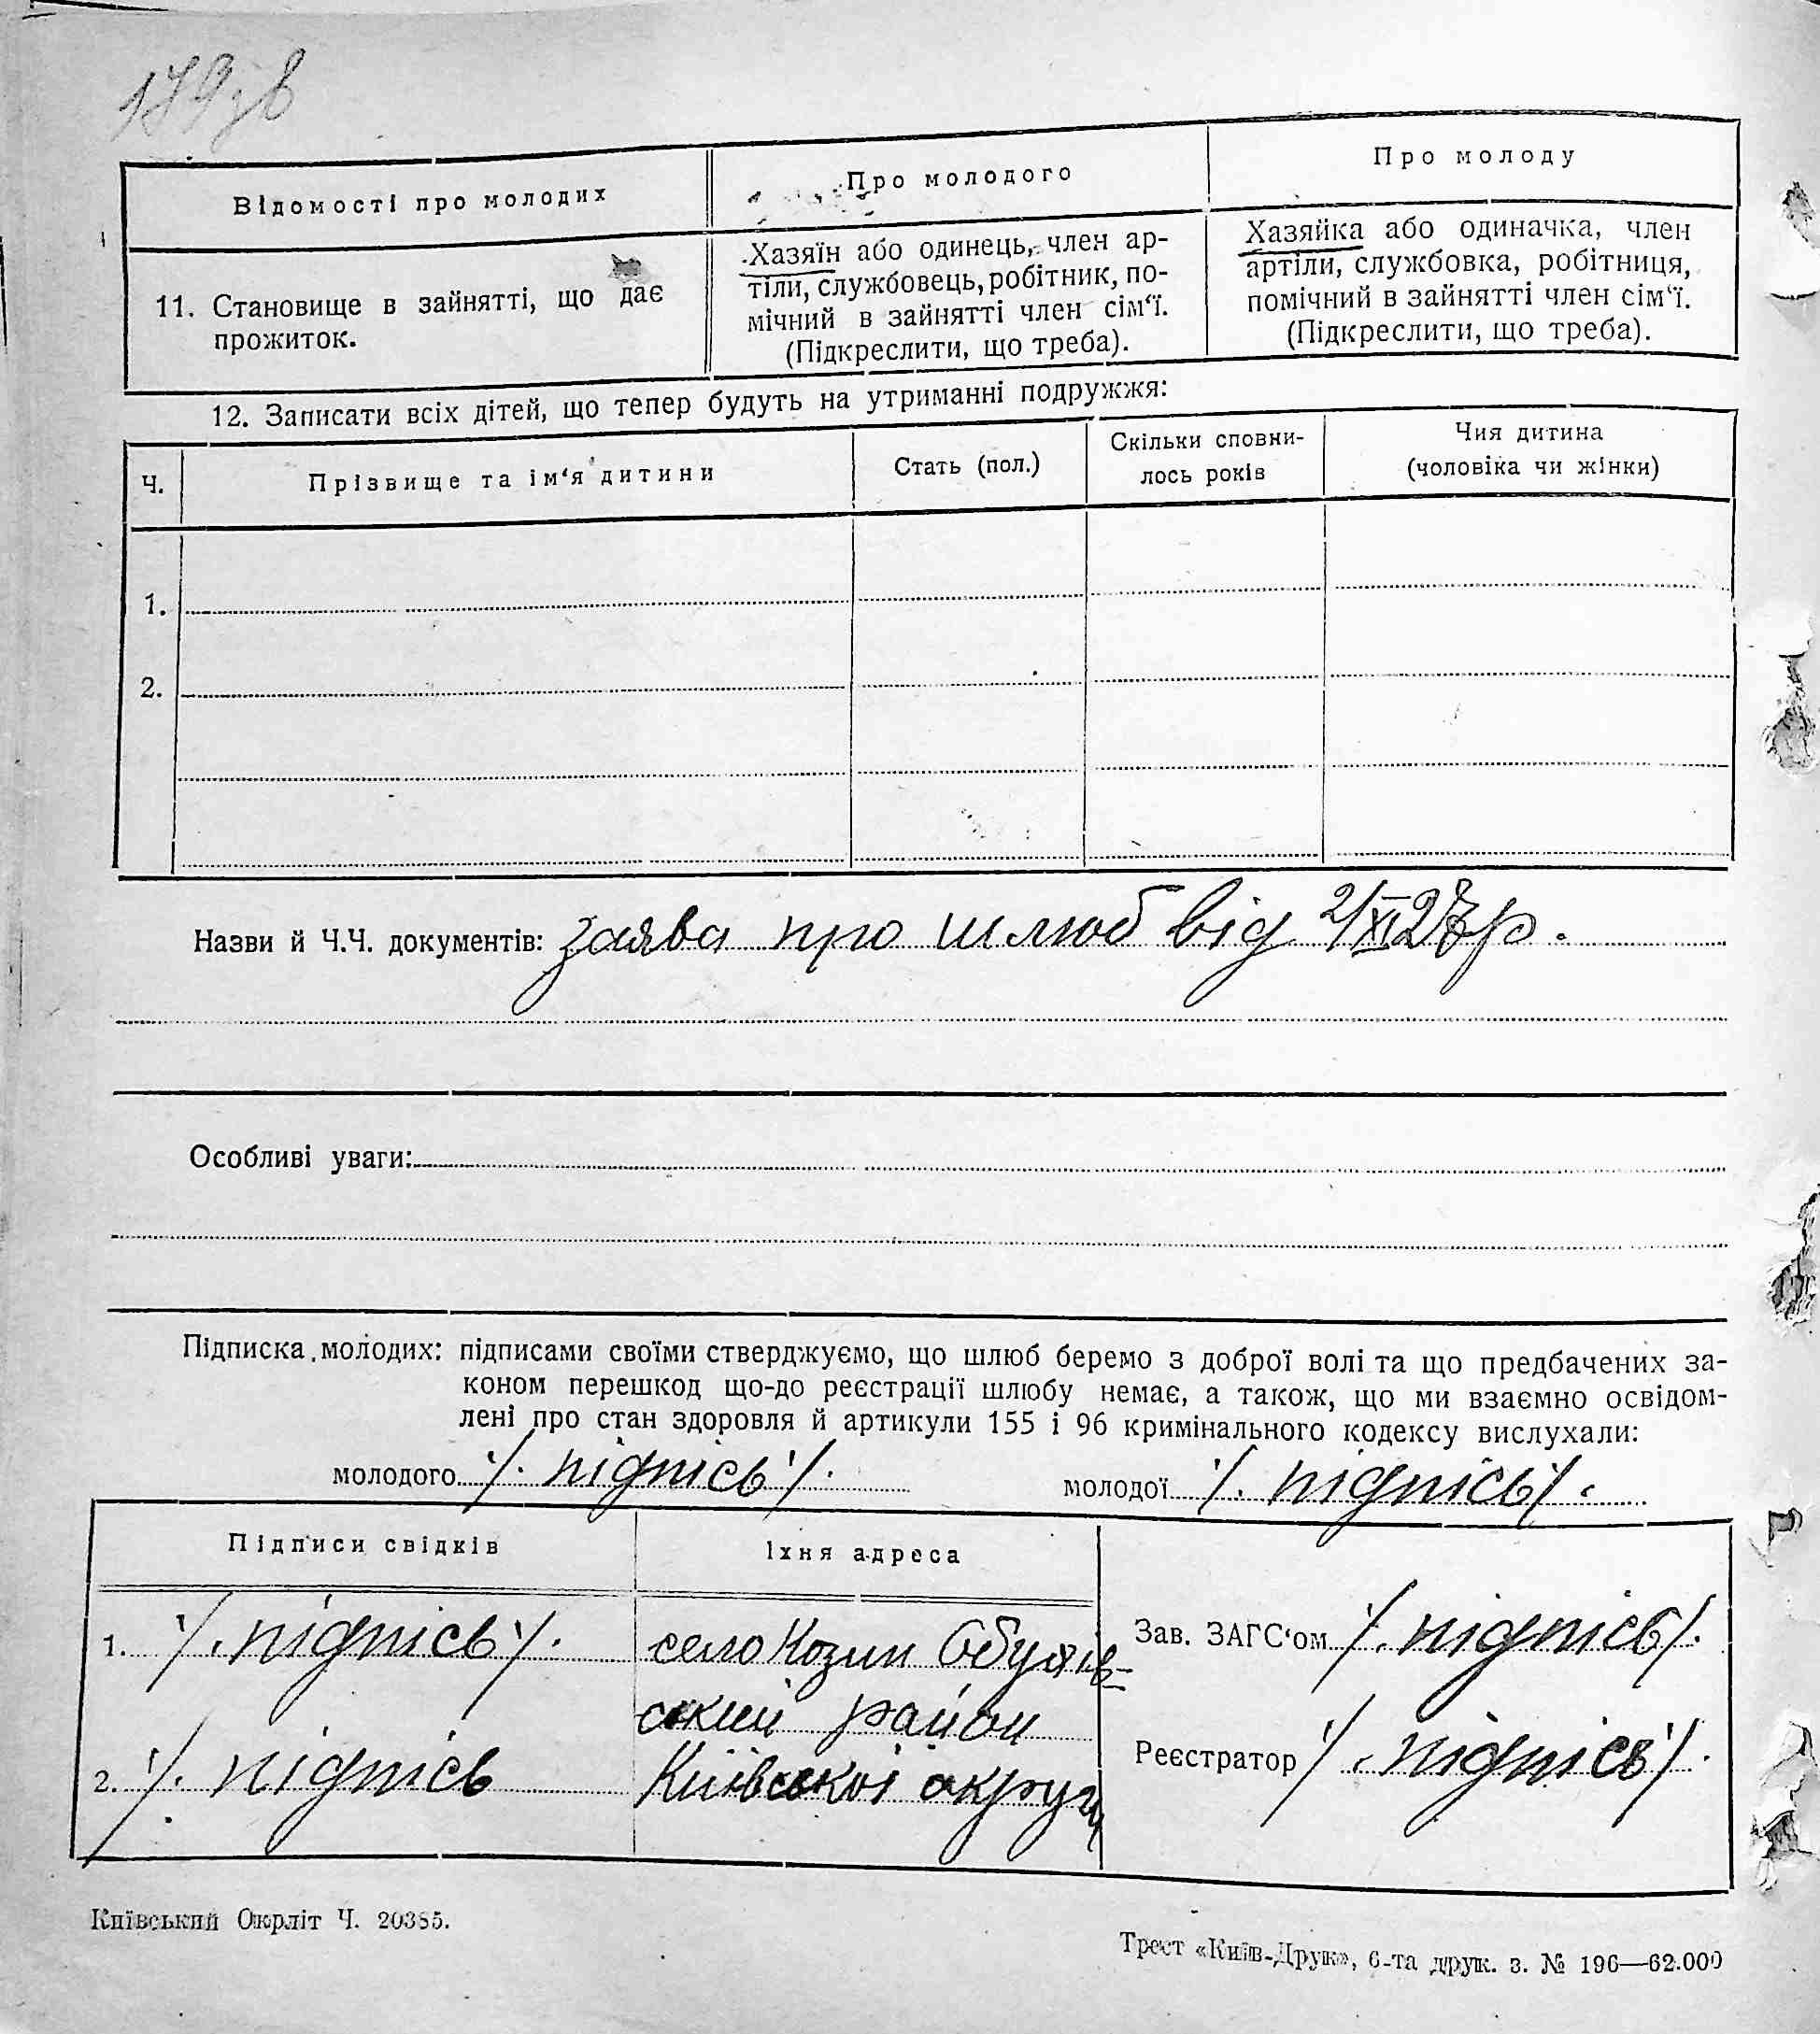 179зв
Відомості про молодих
Про молодого
Про молоду
11. Становище в зайнятті, що дає
прожиток.
Хазяїн або одинець, член ар-
тіли, службовець, робітник, по-
мічний в зайнятті член сім'ї.
(Підкреслити, що треба).
Хазяйка або одиначка, член
артіли, службовка, робітниця,
помічний в зайнятті член сім'ї.
(Підкреслити, що треба).
12. Записати всіх дітей, що тепер будуть на утриманні подружжя:
Ч.
Прізвище та ім'я дитини
Стать (пол.)
Скільки сповни-
лось років
Чия дитина
(чоловіка чи жінки)
1.
2.
Назви й Ч.Ч. документів: заява про шлюб від 2/XI 27 р.
Особливі уваги:
Підписка молодих: підписами своїми стверджуємо, що шлюб беремо з доброї волі та що предбачених за-
коном перешкод що-до реєстрації шлюбу немає, а також, що ми взаємно освідом-
лені про стан здоровля й артикули 155 і 96 кримінального кодексу вислухали:
молодого /. підпісь /. молодої /. підпісь /.
Підписи свідків
Їхня адреса
1. /. підпісь /.
село Козин Обухів-
ський район
Зав. ЗАГС'ом /. підпісь /.
2. /. підпісь
Київської округи
Реєстратор /. підпісь /.
Київський Окрліт Ч. 20385.
Трест «Київ-Друк», 6-та друк. з. № 196—62.000